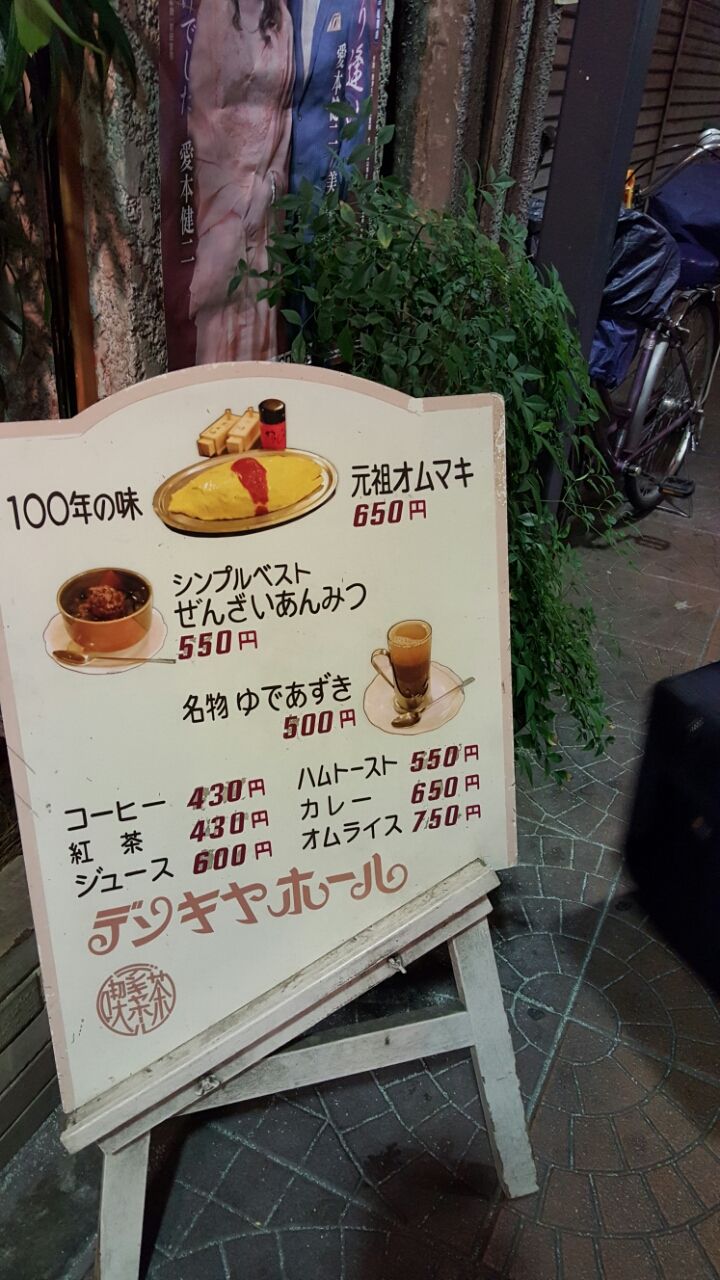 でした
愛本健二
り逢い
愛本健二
美
100年の味
元祖オムマキ
650円
シンプルベスト
ぜんざいあんみつ
550円
名物 ゆであずき
500円
コーヒー 430円
紅茶 430円
ジュース 600円
ハムトースト 550円
カレー 650円
オムライス 750円
デンキヤホール
喫茶